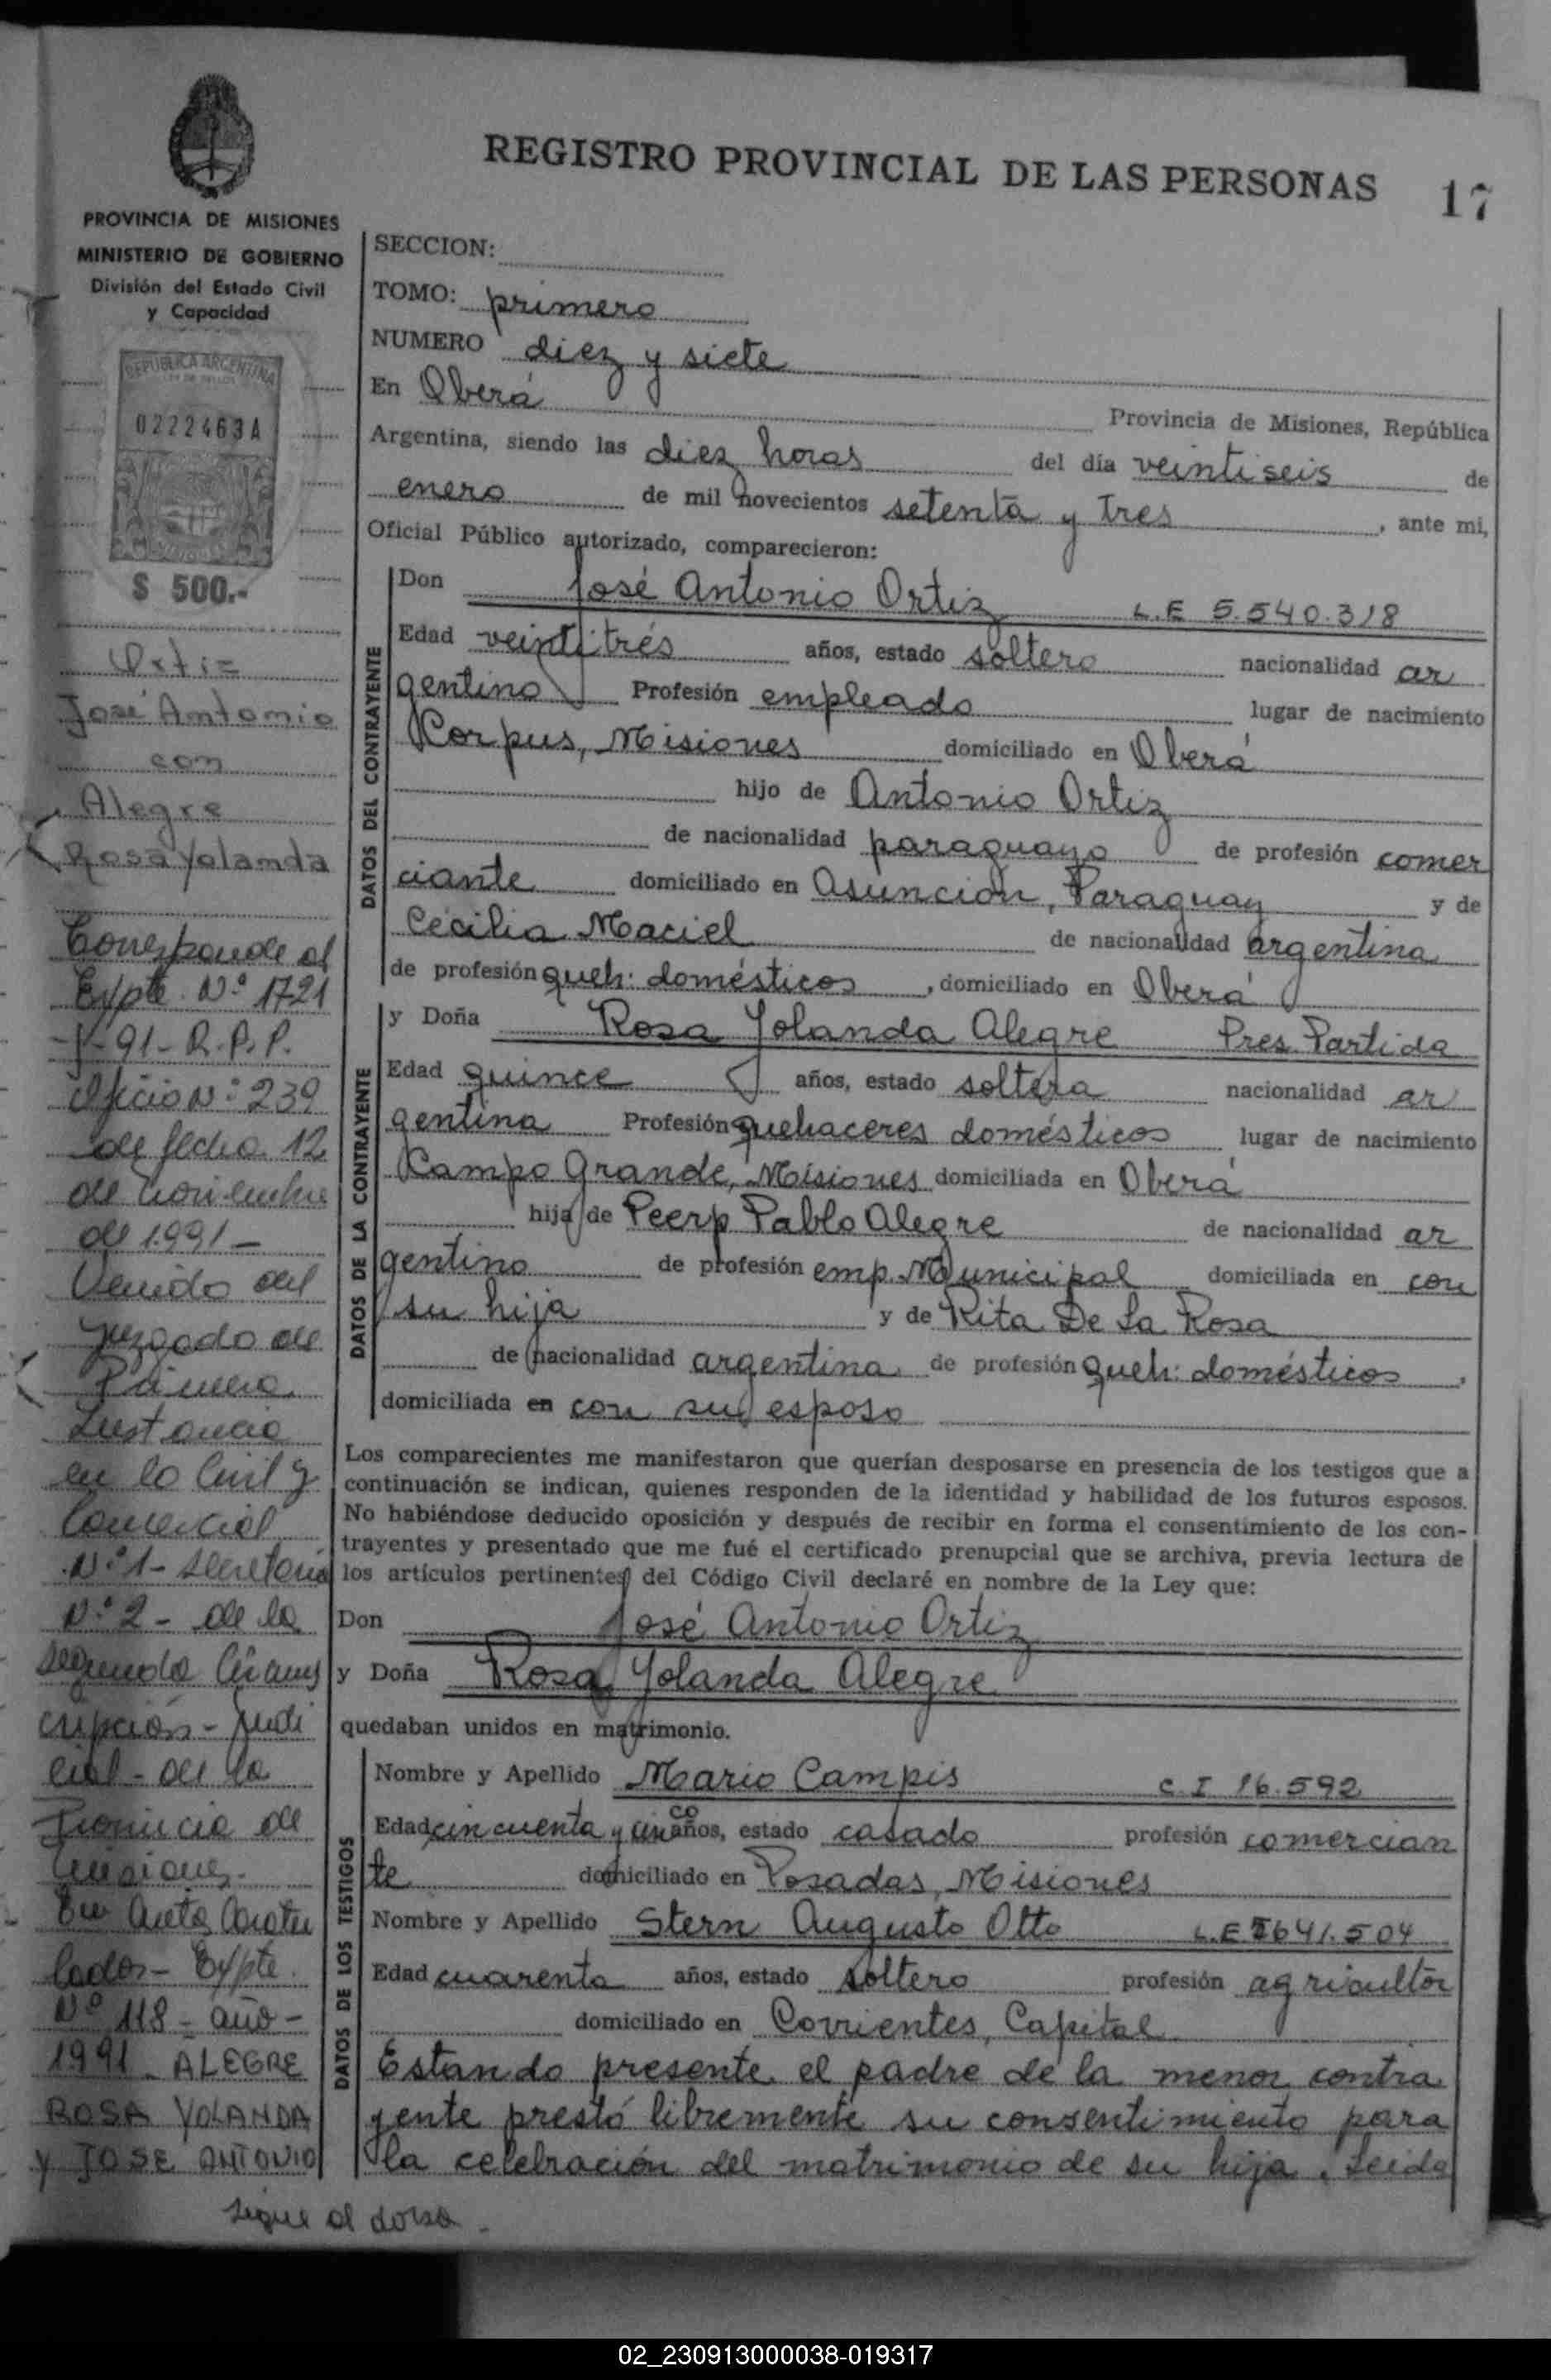 REGISTRO PROVINCIAL DE LAS PERSONAS 17
PROVINCIA DE MISIONES
MINISTERIO DE GOBIERNO
División del Estado Civil
y Capacidad
REPUBLICA ARGENTINA
0222463A
$ 500.-
Ortiz
José Antonio
con
Alegre
Rosa Yolanda
Corresponde al
Expte. Nº 1721
91- R.P.P.
Oficio Nº 239
de fecha 12
de noviembre
de 1991-
Venido del
Juzgado de
Primera
Instancia
en lo Civil y
Comercial
Nº 1- Secretaria
Nº 2- de la
segunda Circuns
cripción- Judi
cial- de la
Provincia de
Misiones.
En Autos Caratu
lados- Expte.
Nº 118- año-
1991- ALEGRE
ROSA YOLANDA
Y JOSE ANTONIO
sigue al dorso-
SECCION:
TOMO: primero
NUMERO diez y siete
En Oberá Provincia de Misiones, República
Argentina, siendo las diez horas del día veintiseis de
enero de mil novecientos setenta y tres, ante mi,
Oficial Público autorizado, comparecieron:
DATOS DEL CONTRAYENTE
Don José Antonio Ortiz L.E 5.540.318
Edad veintitrés años, estado soltero nacionalidad ar
gentino Profesión empleado lugar de nacimiento
Corpus, Misiones domiciliado en Oberá
hijo de Antonio Ortiz
de nacionalidad paraguayo de profesión comer
ciante domiciliado en Asunción, Paraguay y de
Cecilia Maciel de nacionalidad argentina
de profesión queh: domésticos, domiciliado en Oberá
DATOS DE LA CONTRAYENTE
y Doña Rosa Yolanda Alegre Pres. Partida
Edad quince años, estado soltera nacionalidad ar
gentina Profesión quehaceres domésticos lugar de nacimiento
Campo Grande, Misiones domiciliada en Oberá
hija de Pablo Alegre de nacionalidad ar
gentino de profesión emp. Municipal domiciliada en con
su hija y de Rita De La Rosa
de nacionalidad argentina de profesión queh: domésticos,
domiciliada en con su esposo
Los comparecientes me manifestaron que querían desposarse en presencia de los testigos que a
continuación se indican, quienes responden de la identidad y habilidad de los futuros esposos.
No habiéndose deducido oposición y después de recibir en forma el consentimiento de los con-
trayentes y presentado que me fué el certificado prenupcial que se archiva, previa lectura de
los artículos pertinentes del Código Civil declaré en nombre de la Ley que:
Don José Antonio Ortiz
y Doña Rosa Yolanda Alegre
quedaban unidos en matrimonio.
DATOS DE LOS TESTIGOS
Nombre y Apellido Mario Campis C.I 16.592
Edad cincuenta y cinco años, estado casado profesión comercian
te domiciliado en Posadas, Misiones
Nombre y Apellido Stern Augusto Otto L.E 641.504
Edad cuarenta años, estado soltero profesión agricultor
domiciliado en Corrientes, Capital
Estando presente el padre de la menor contra
yente prestó libremente su consentimiento para
la celebración del matrimonio de su hija. Leida
02_230913000038-019317